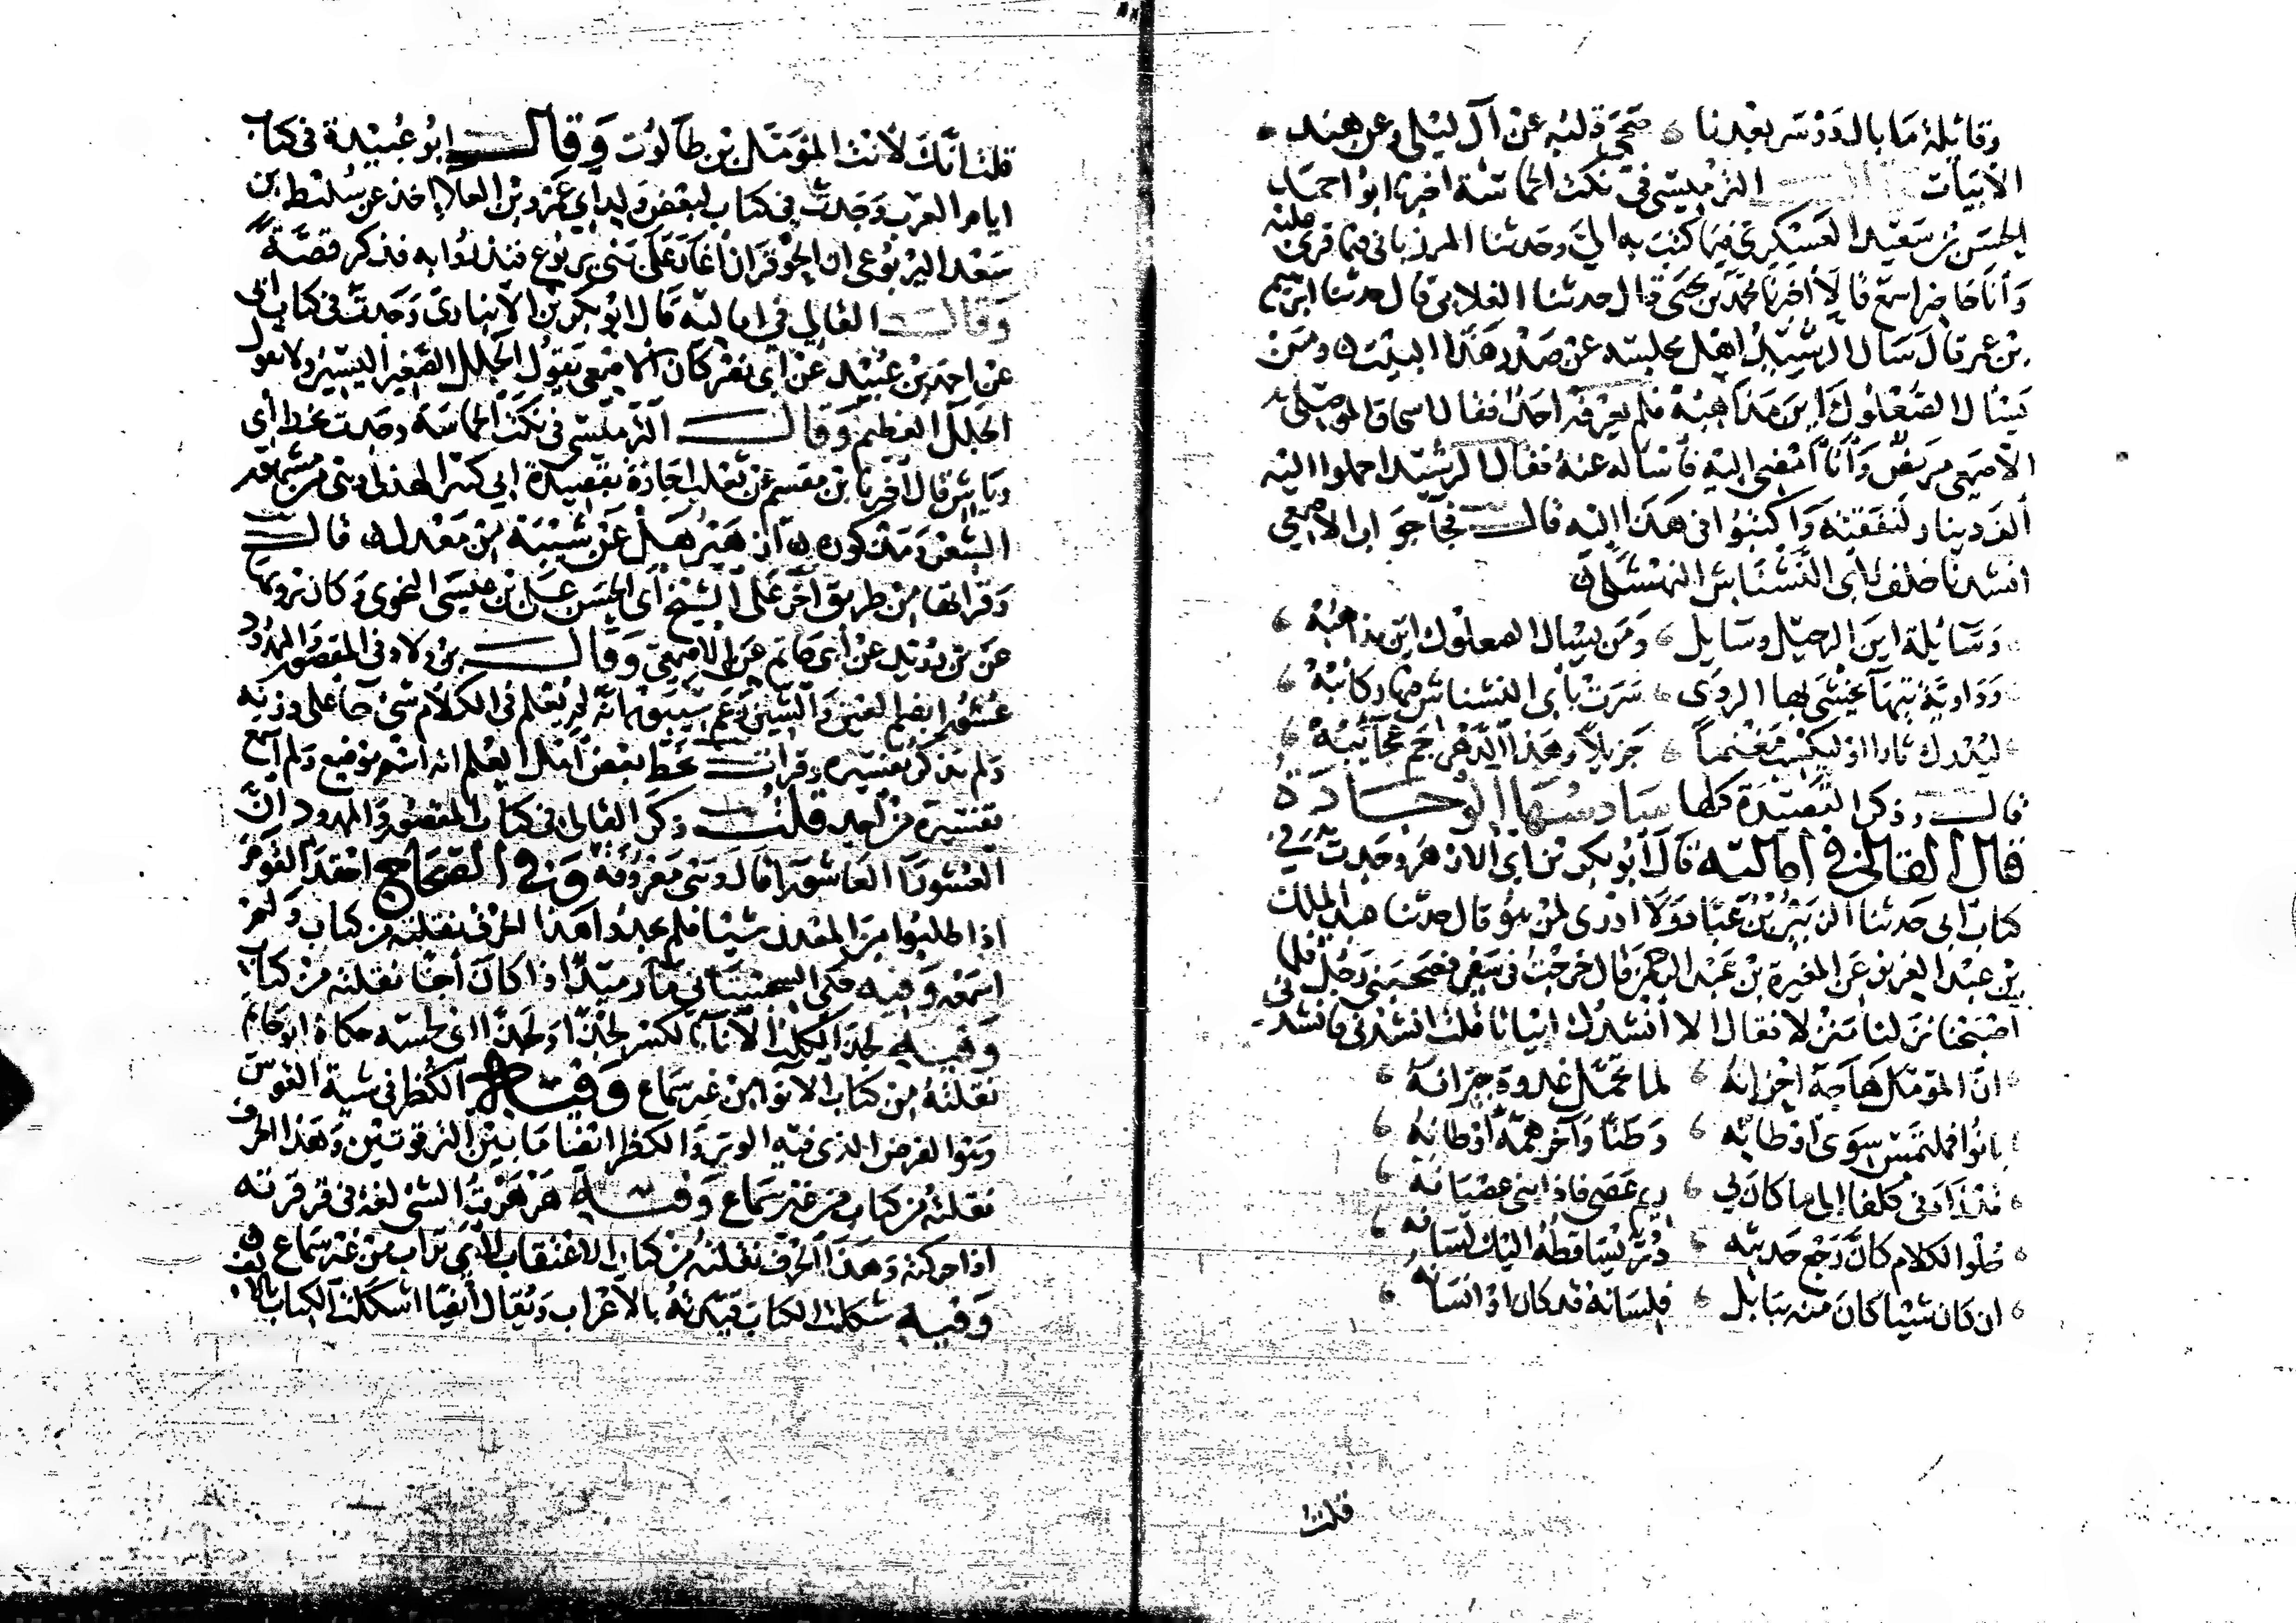 وقائلة ما بال دوسر بعدنا صحى قلبه عن آل ليلى وعن هند
الأبيات وقال الترمسي في نكت الحماسة اخبرنا ابو احمد
الحسن بن سعيد العسكري فيما كتب به الي وحدثنا المرزباني فيما قرئ عليه
وأنا حاضر اسمع قالا أخبرنا محمد بن يحيى قال حدثنا الغلابي قال حدثنا ابرهيم
بن عمر قال سأل الرشيد أهل مجلسه عن صدر هذا البيت ومن
يسال الصعلوك اين مذاهبه فلم يعرفه احد فقال اسحاق الموصلي
الأصمعي مريض وأنا أمضي اليه فأساله عنه فقال الرشيد احملوا اليه
ألف دينار لنفقته واكتبوا في هذا اليه قال فجا جواب الاصمعي
انشدنا خلف لابي النشناش النهشلي
وسايلة اين الرحيل وسايل ومن يسال الصعلوك اين مذاهبه
وداوية تيهآ يخشى بها الردى سرت بأبي النشناش فيها ركائبه
ليدرك ثارا او ليكسب مغنما جزيلا وهذا الدهر جم عجائبه
قال وذكر القصيدة كلها سادسها الوجادة
قال القالي في أماليه قال أبو بكر بن أبي الازهر وجدت في
كتاب ابي حدثنا الزبير بن عباد ولا أدري لمن هو قال حدثنا عبد الملك
بن عبد العزيز عن المغيرة بن عبد الرحمن قال خرجت في سفر فصحبني رجل فلما
أصبحنا نزلنا منزلا فقال الا أنشدك ابياتا قلت انشدني فانشدني
ان المؤمل هاجه احزانه لما تحمل غدوة جيرانه
بانوا فملتمس سوى اوطانه وطنا وآخر همه أوطانه
قد زادني كلفا الى ما كان بي ريم عصى فاذابني عصيانه
حلو الكلام كأن رجع حديثه در يساقطه اليك لسانه
ان كان شيا كان منه ببابل فلسانه قد كان او انسانه
قلت
قلت انك لأنت المؤمل بن طالوت وقال ابو عبيدة في كتاب
ايام العرب وجدت في كتاب لبعض ولد ابي عمرو بن العلا اخذ عن سليط بن
سعد اليربوعي ان الحوفزان أغار على بني يربوع فنذروا به فذكر قصة
وقال القالي في اماليه قال ابو بكر بن الأنباري وجدت في كتاب ابي
عن احمد بن عبيد عن أبي نصر كان الاصمعي يقول الجلل الصغير اليسير ولا يقول
الجلل العظيم وقال الترمسي في نكت الحماسة وجدت بخط أبي
رياش قال أخبرنا ابن مقسم عن ثعلب اجازة بقصيدة ابي كبير الهذلي وهي من مشهور
الشعر ومذكوره أزهير هل عن شيبة من معدل قال
وقراتها من طريق آخر على الشيخ أبي الحسن علي بن عيسى النحوي وكان يرويها
عن بن دريد عن أبي حاتم عن الاصمعي وقال بن ولاد في المقصور والممدود
عشورا بضم العين والشين زعم سيبويه انه لم يعلم في الكلام شئ جا على وزنه
ولم يذكر تفسيره وقرأت بخط بعض أهل العلم انه اسم موضع ولم أسمع
تفسيره من أحد قلت ذكر القالي في كتاب المقصور والممدود ان
العشورا العاشورا قال وهي معروفة وفي الصحاح احقد القوم
اذا طلبوا من المعدن شيئا فلم يجدوا هذا الحرف نقلته من كتاب ولم
اسمعه وفيه حكى السجستاني مآ رمد اذا كان آجنا نقلته من كتاب
وفيه لجذ الكلب الاناء بالكسر لجذا ولجذا اي لحسه حكاه ابو حاتم
نقلته من كتاب الابواب من غير سماع وفيه الكظر في سية القوس
وهو الفرض الذي فيه الوتر والكظر ايضا ما بين الترقوتين وهذا الحرف
نقلته من كتاب من غير سماع وفيه هزهزت الشئ لغة في فرفرته
اذا حركته وهذا الحرف نقلته من كتاب الاعتقاب لأبي تراب من غير سماع
وفيه شكلت الكتاب قيدته بالأعراب ويقال أيضا اشكلت الكتاب بالالف